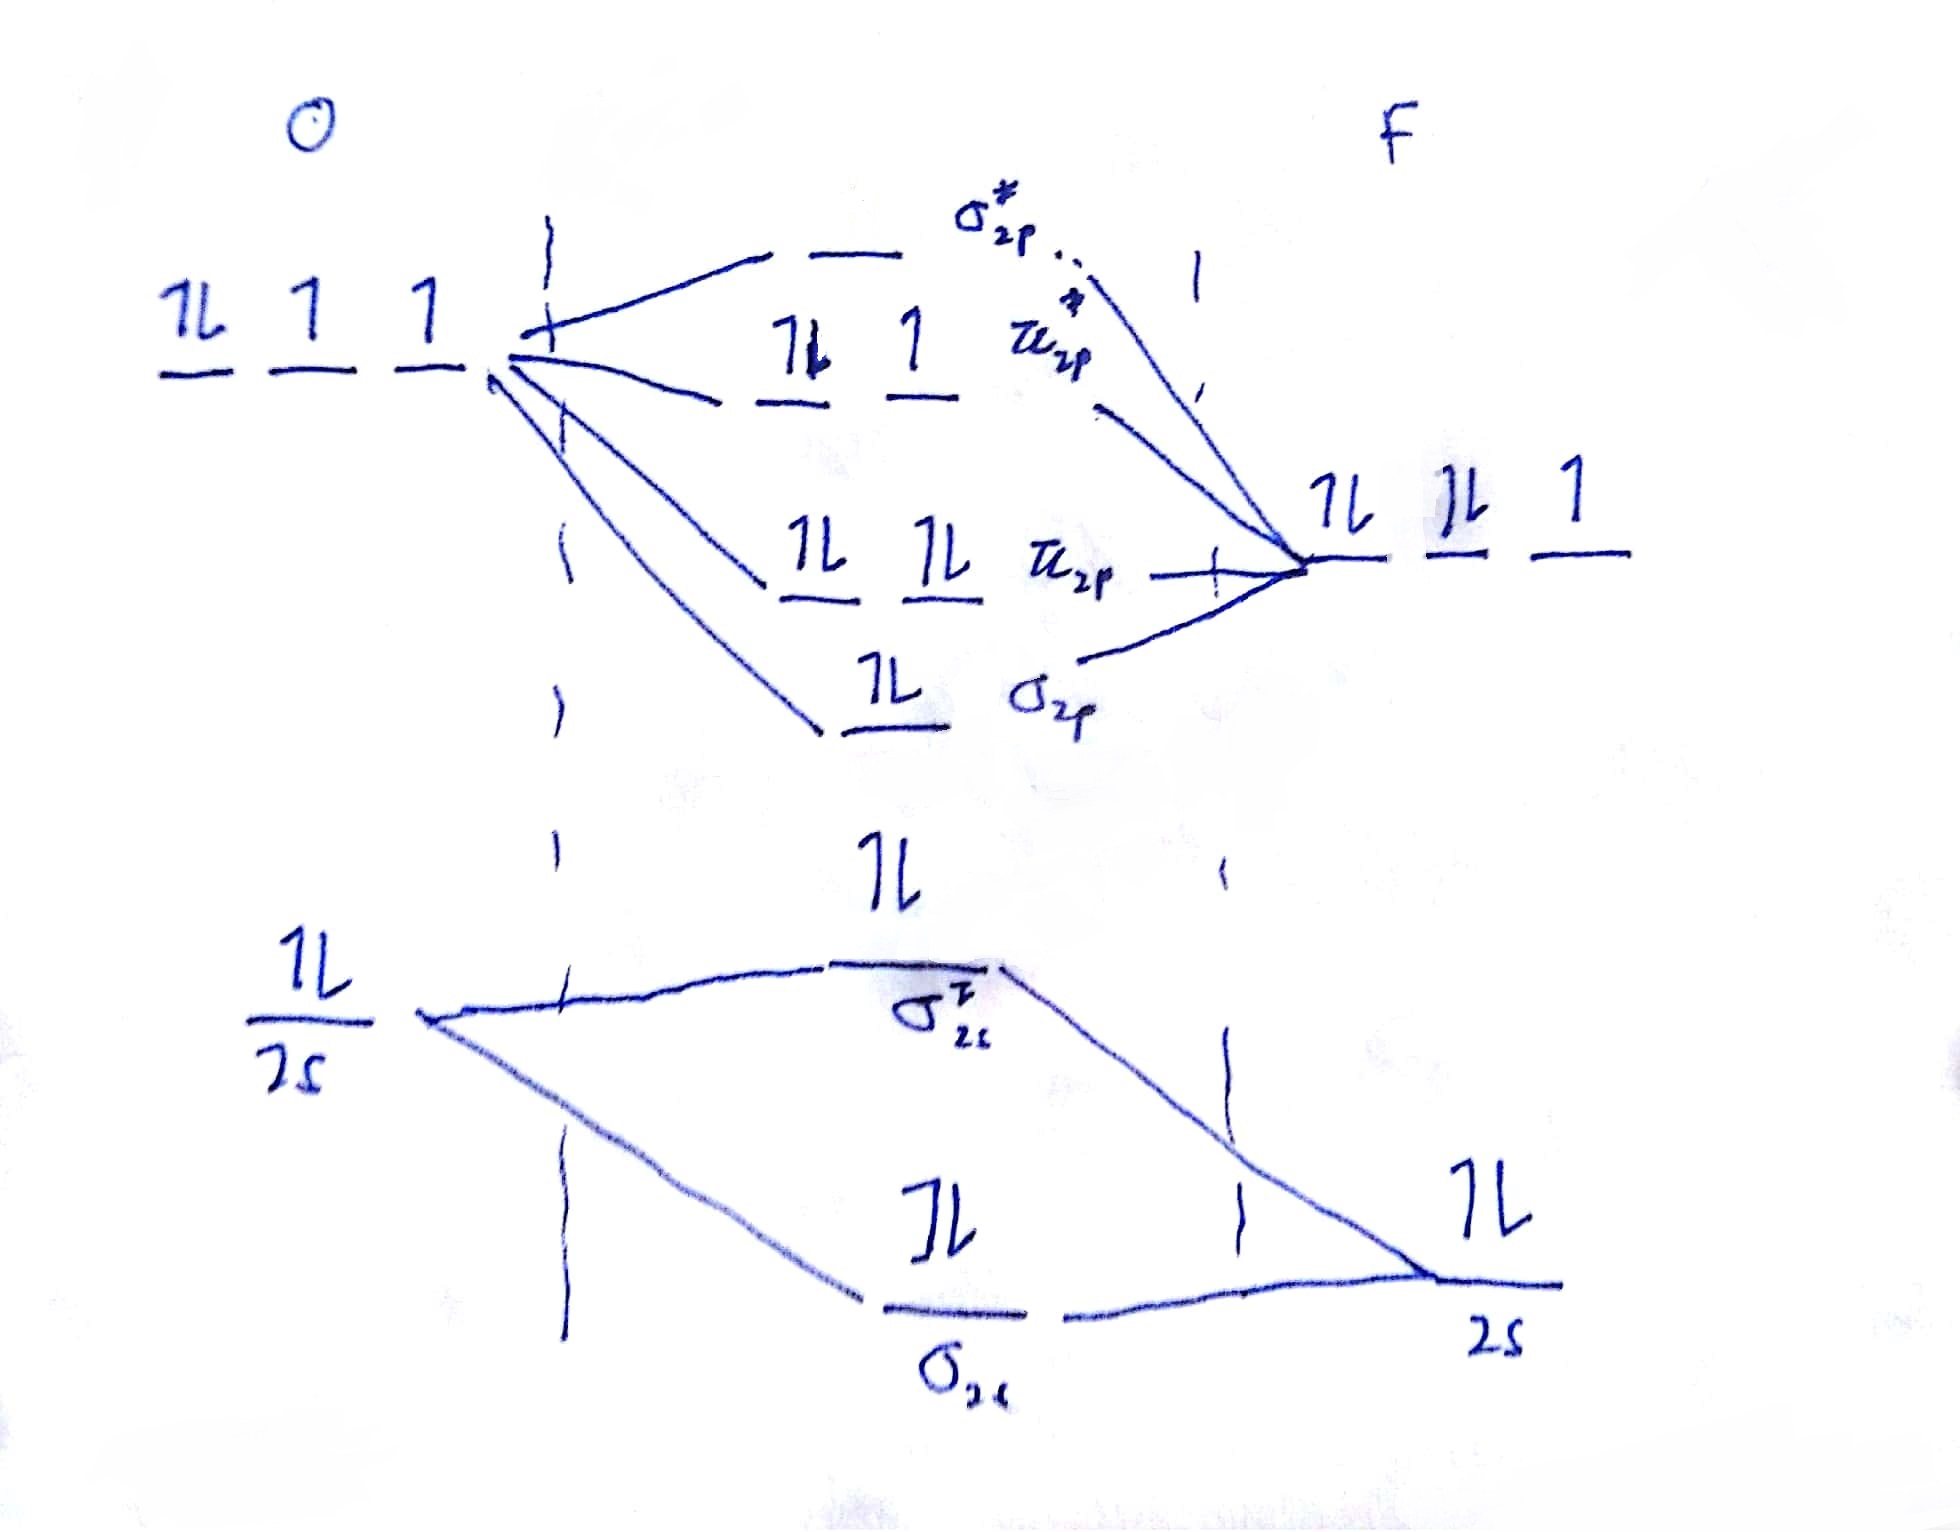 O F
σ*2p
↿⇂ ↿ ↿ ↿⇂ ↿ π*2p
↿⇂ ↿⇂ π2p ↿⇂ ↿⇂ ↿
↿⇂ σ2p
↿⇂ ↿⇂
2s σ*2s
↿⇂ ↿⇂
σ2s 2s